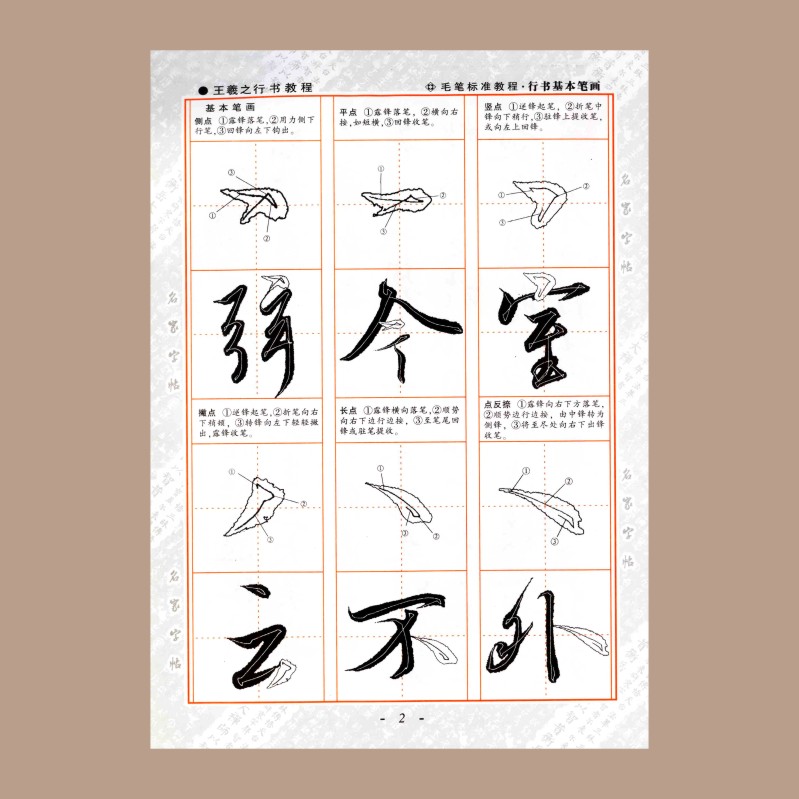 ●王羲之行书教程
毛笔标准教程·行书基本笔画
基本笔画
侧点 ①露锋落笔,②用力侧下
行笔,③回锋向左下钩出。
平点 ①露锋落笔,②横向右
按,如短横,③回锋收笔。
竖点 ①逆锋起笔,②折笔中
锋向下稍行,③驻锋上提收笔,
或向左上回锋。
①
②
③
①
②
③
①
②
③
今
室
撇点 ①逆锋起笔,②折笔向右
下稍顿,③转锋向左下轻轻撇
出,露锋收笔。
长点 ①露锋横向落笔,②顺势
向右下边行边按,③至笔尾回
锋或驻笔提收。
点反捺 ①露锋向右下方落笔,
②顺势边行边按,由中锋转为
侧锋,③将至尽处向右下出锋
收笔。
①
②
③
①
②
③
①
②
③
云
不
外
名家字帖
名家字帖
名家字帖
名家字帖
- 2 -